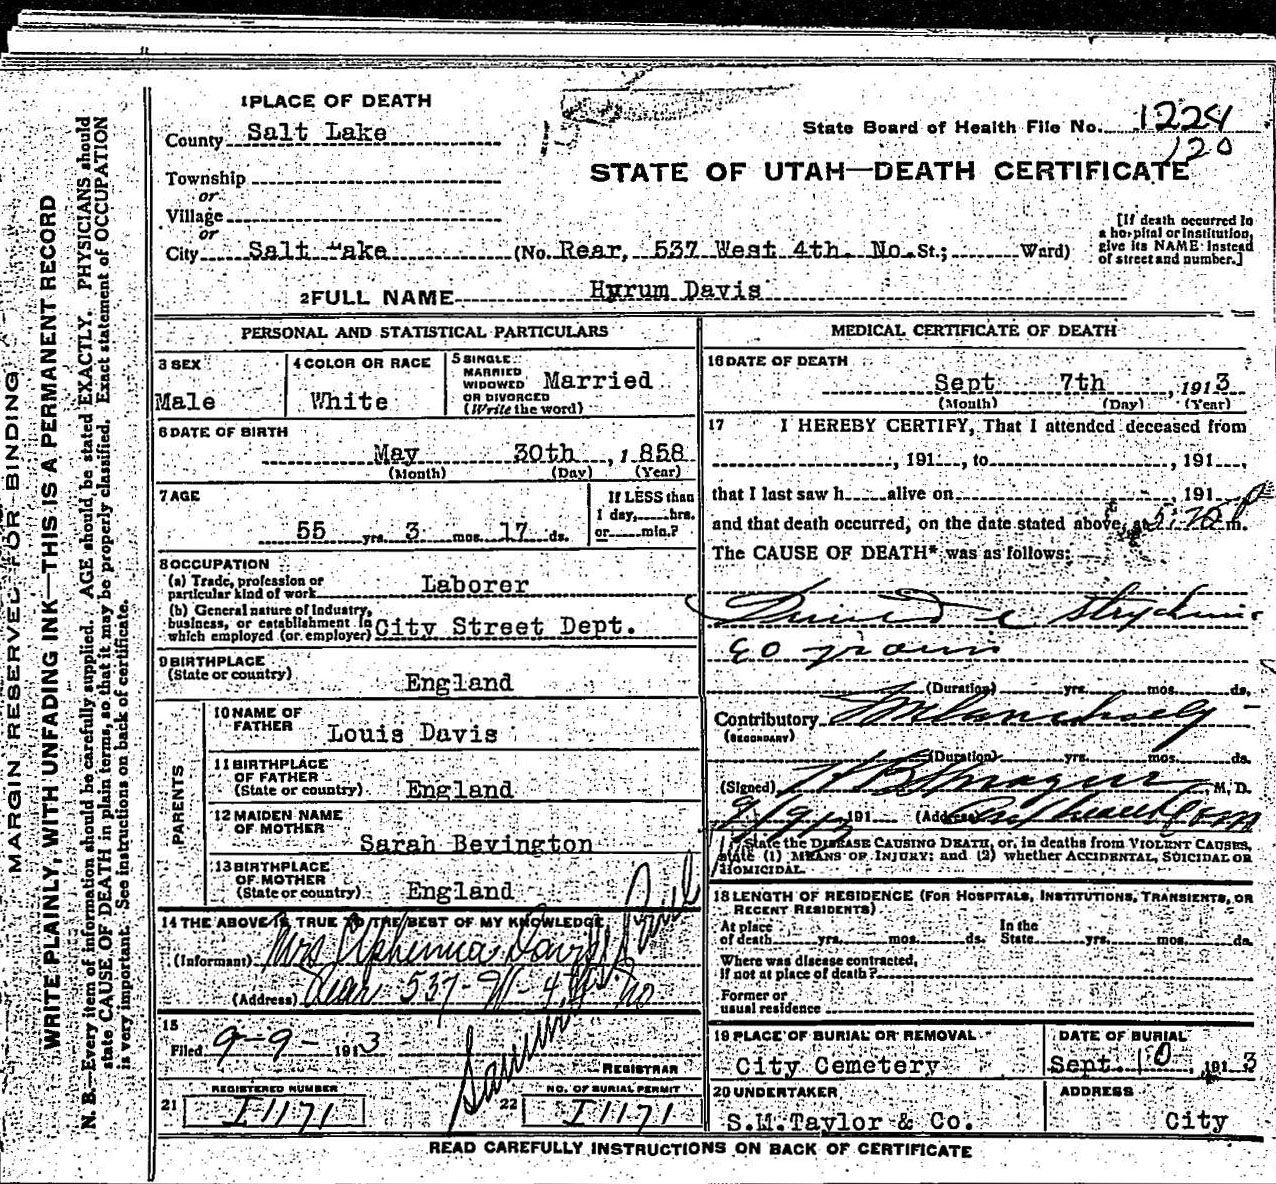 MARGIN RESERVED FOR BINDING
WRITE PLAINLY, WITH UNFADING INK—THIS IS A PERMANENT RECORD
N. B.—Every item of information should be carefully supplied. AGE should be stated EXACTLY. PHYSICIANS should
state CAUSE OF DEATH in plain terms, so that it may be properly classified. Exact statement of OCCUPATION
is very important. See instructions on back of certificate.
1 PLACE OF DEATH
County Salt Lake
Township
or
Village
or
City Salt Lake (No. Rear, 537 West 4th. No. St.; Ward)
State Board of Health File No. 1224
120
STATE OF UTAH—DEATH CERTIFICATE
[If death occurred in
a hospital or institution,
give its NAME instead
of street and number.]
2 FULL NAME Hyrum Davis
PERSONAL AND STATISTICAL PARTICULARS
3 SEX
Male
4 COLOR OR RACE
White
5 SINGLE
MARRIED
WIDOWED
OR DIVORCED
(Write the word)
Married
6 DATE OF BIRTH
May 30th, 1858
(Month) (Day) (Year)
7 AGE
55 yrs. 3 mos. 17 ds.
If LESS than
1 day, hrs.
or min.?
8 OCCUPATION
(a) Trade, profession or
particular kind of work Laborer
(b) General nature of industry,
business, or establishment in
which employed (or employer) City Street Dept.
9 BIRTHPLACE
(State or country)
England
PARENTS
10 NAME OF
FATHER
Louis Davis
11 BIRTHPLACE
OF FATHER
(State or country)
England
12 MAIDEN NAME
OF MOTHER
Sarah Bevington
13 BIRTHPLACE
OF MOTHER
(State or country)
England
14 THE ABOVE IS TRUE TO THE BEST OF MY KNOWLEDGE
(Informant) Mrs Davis
(Address) Rear 537-W-4th No
15
Filed 9-9-1913
REGISTRAR
REGISTERED NUMBER
21 I1171
NO. OF BURIAL PERMIT
22 I1171
MEDICAL CERTIFICATE OF DEATH
16 DATE OF DEATH
Sept 7th, 1913
(Month) (Day) (Year)
17 I HEREBY CERTIFY, That I attended deceased from
, 191 , to , 191 ,
that I last saw h alive on , 191
and that death occurred, on the date stated above, at m.
The CAUSE OF DEATH* was as follows:
(Duration) yrs. mos. ds.
Contributory Melancholy
(SECONDARY)
(Duration) yrs. mos. ds.
(Signed) M. D.
9/9/13 191 (Address)
State the DISEASE CAUSING DEATH, or, in deaths from VIOLENT CAUSES,
state (1) MEANS OF INJURY; and (2) whether ACCIDENTAL, SUICIDAL OR
HOMICIDAL.
18 LENGTH OF RESIDENCE (FOR HOSPITALS, INSTITUTIONS, TRANSIENTS, OR
RECENT RESIDENTS)
At place
of death yrs. mos. ds.
In the
State yrs. mos. ds.
Where was disease contracted,
if not at place of death?
Former or
usual residence
19 PLACE OF BURIAL OR REMOVAL
City Cemetery
DATE OF BURIAL
Sept. 10, 1913
20 UNDERTAKER
S.M. Taylor & Co.
ADDRESS
City
READ CAREFULLY INSTRUCTIONS ON BACK OF CERTIFICATE